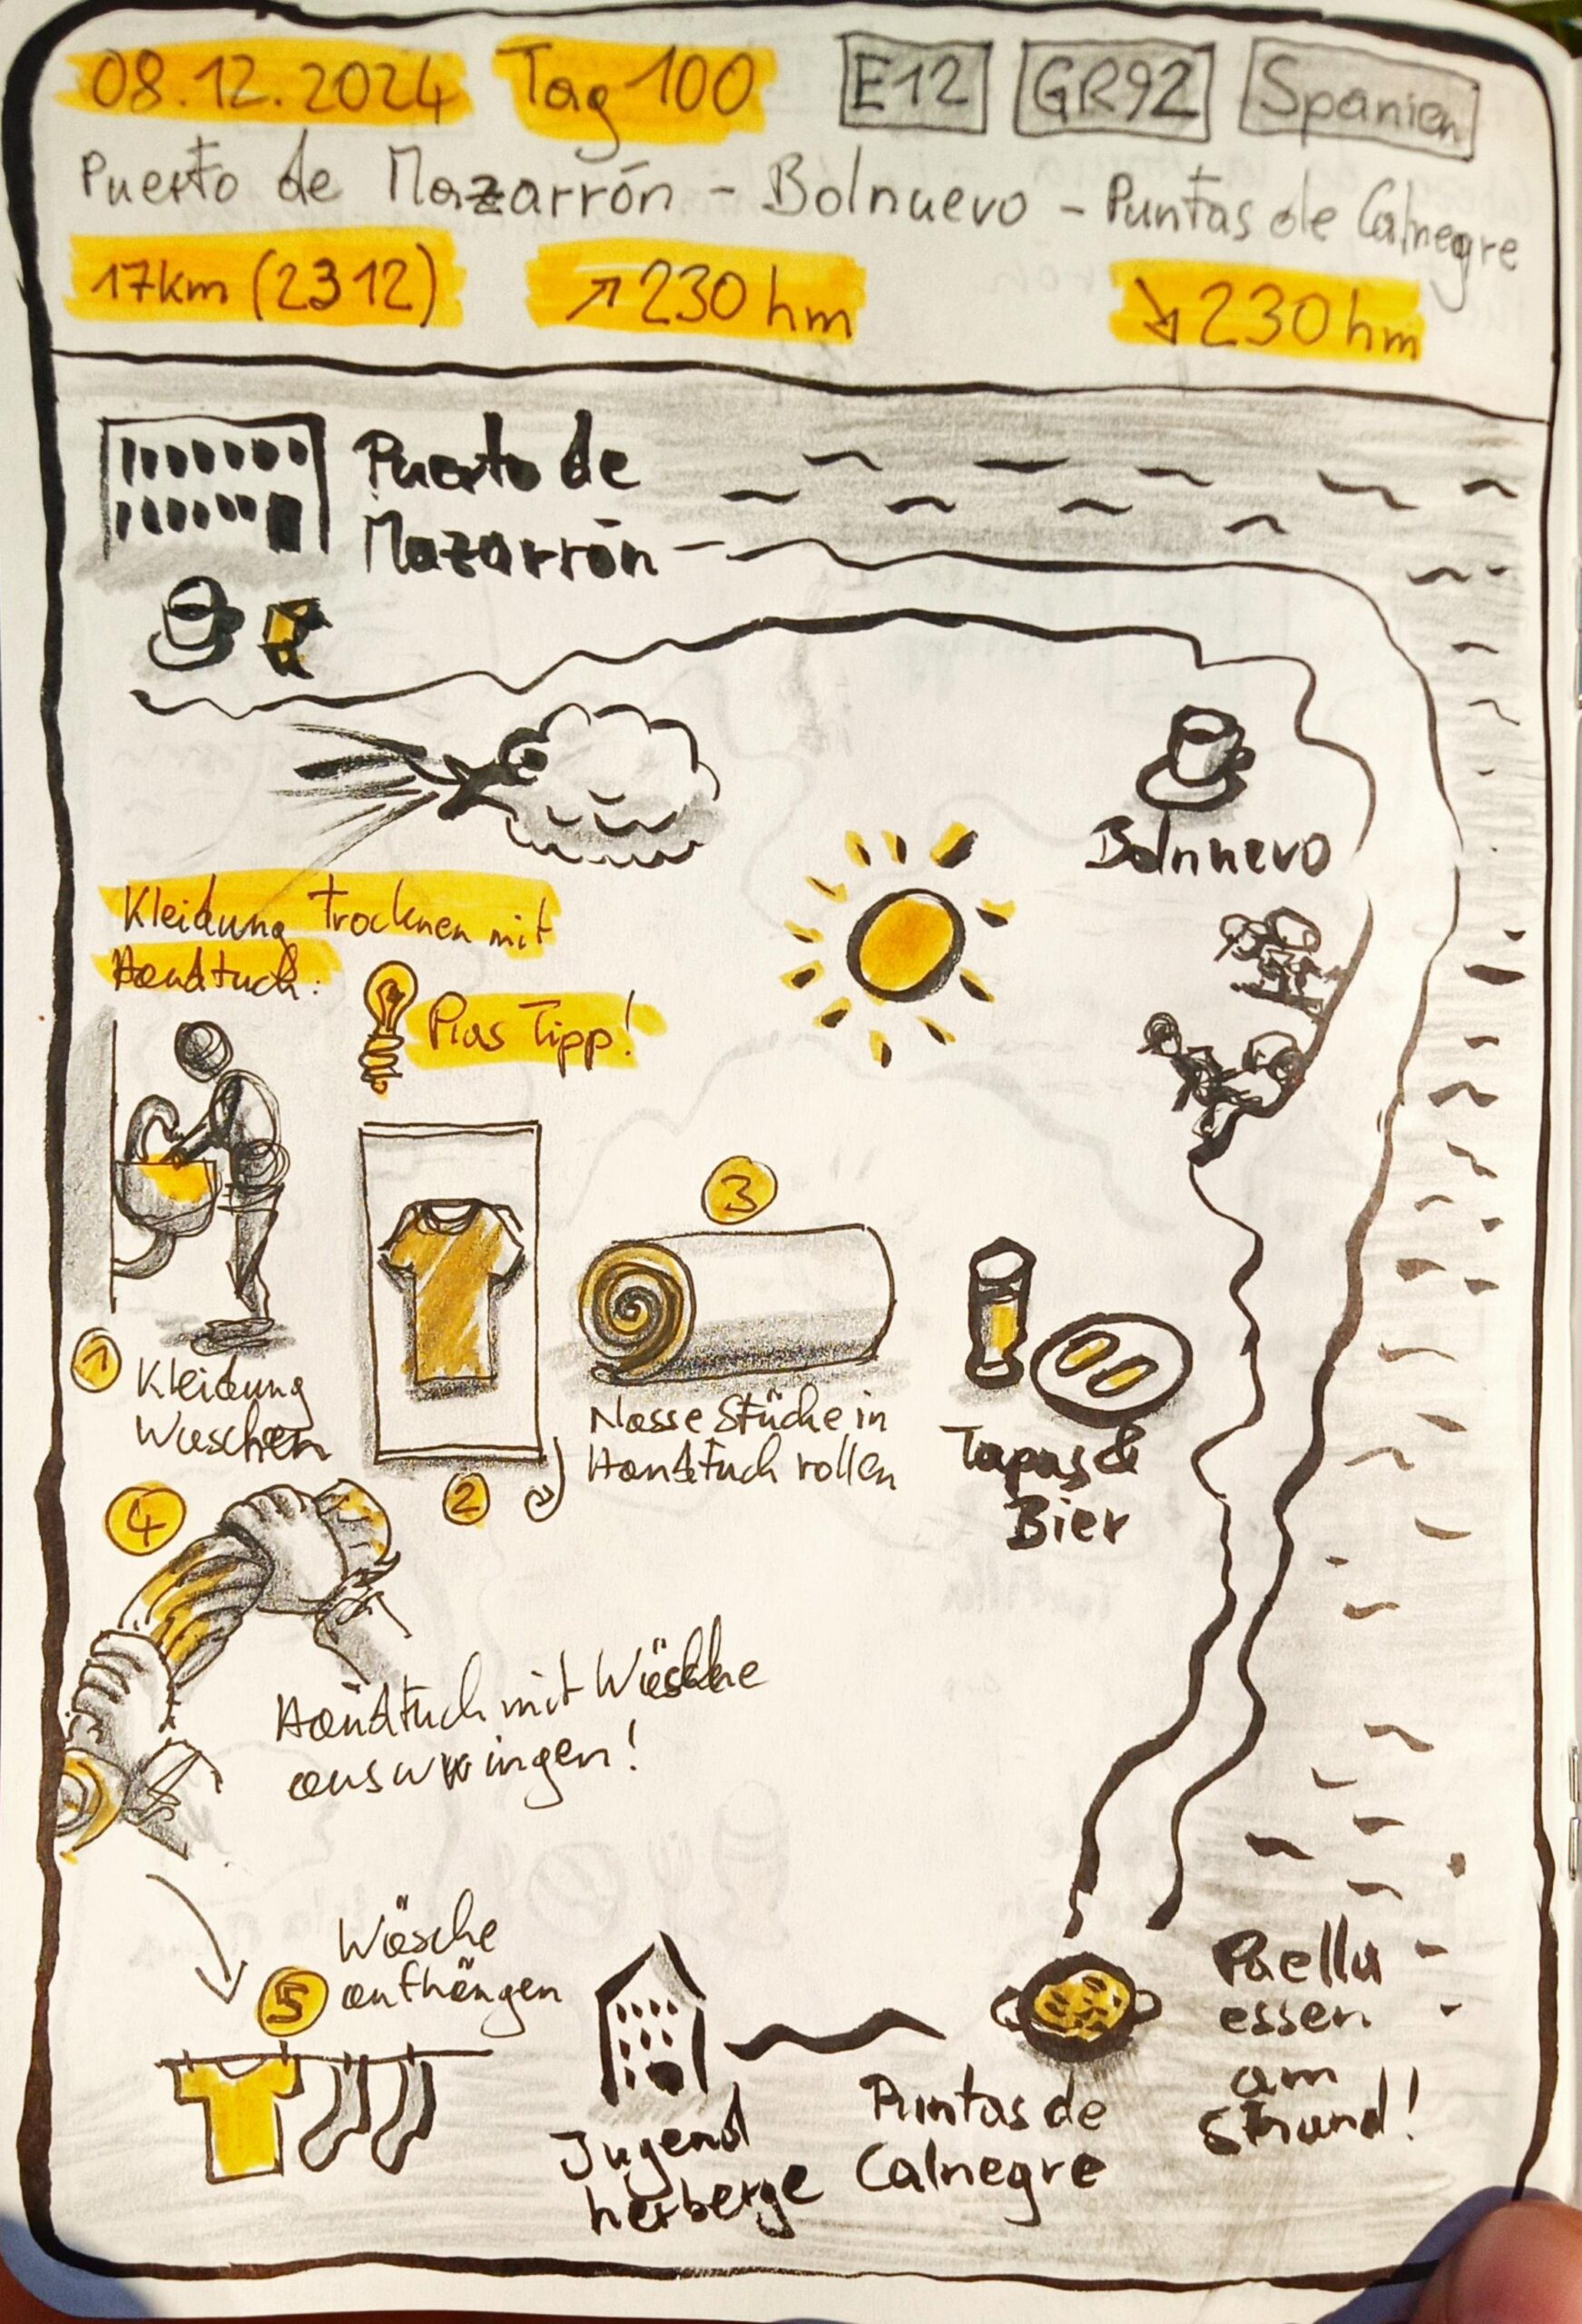 08.12.2024 Tag 100 E12 GR92 Spanien
Puerto de Mazarrón - Bolnuevo - Puntas de Calnegre
17km (2312) ↗230hm ↘230hm
Puerto de
Mazarrón
Bolnuevo
Kleidung trocknen mit
Handtuch:
Pias Tipp!
1 Kleidung
Waschen
2
3
Nasse Stücke in
Handtuch rollen
Tapas &
Bier
4
Handtuch mit Wäsche
auswringen!
5 Wäsche
aufhängen
Jugend
herberge
Puntas de
Calnegre
Paella
essen
am
Strand!